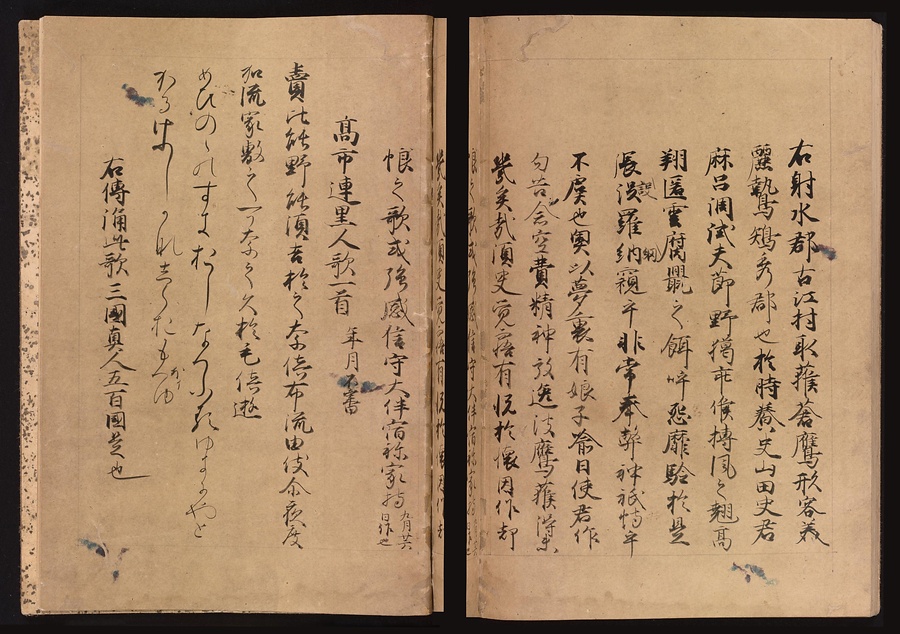 右射水郡古江村取獲蒼鷹形容美
麗鷙鴙秀郡也於時養吏山田史君
麻呂調試失節野猟乖候摶風之翹高
翔匿雲腐鼠之餌呼忽靡驗於是
張設羅網窺乎非常奉幣神祇恃乎
不虞也奥以夢裏有娘子喩曰使君
勿苦念空費精神放逸彼鷹獲得
矣哉須叟覺寤有悦於懷因作却
恨之歌式旌感信守大伴宿祢家持
九月廿六
日作之
高市連黒人歌一首
年月不審
賣比能野能須吉於之奈倍布流由伎尓夜度
加流家敷之可奈之久於毛倍遊
めひのゝのすすきおしなへふるゆきにやと
かるけふしかなしくおもほゆ
右傳誦此歌三國真人五百國是也